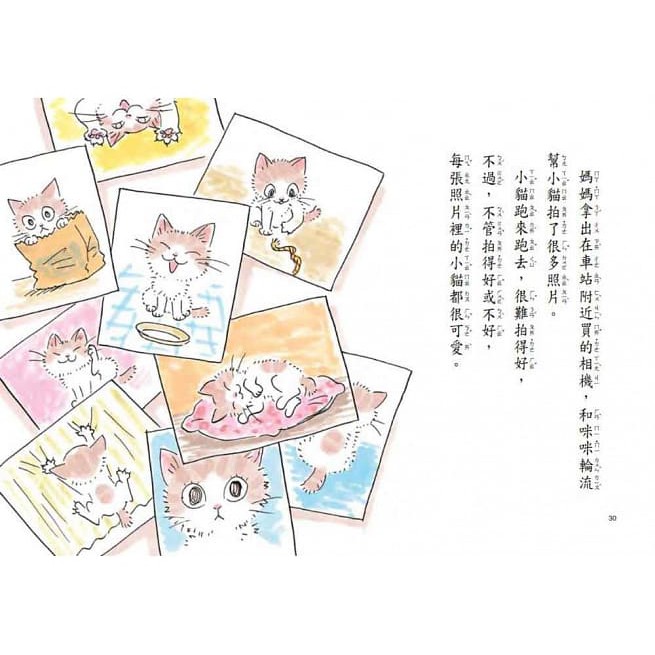 媽媽拿出在車站附近買的相機，和咪咪輪流
幫小貓拍了很多照片。
小貓跑來跑去，很難拍得好，
不過，不管拍得好或不好，
每張照片裡的小貓都很可愛。
30